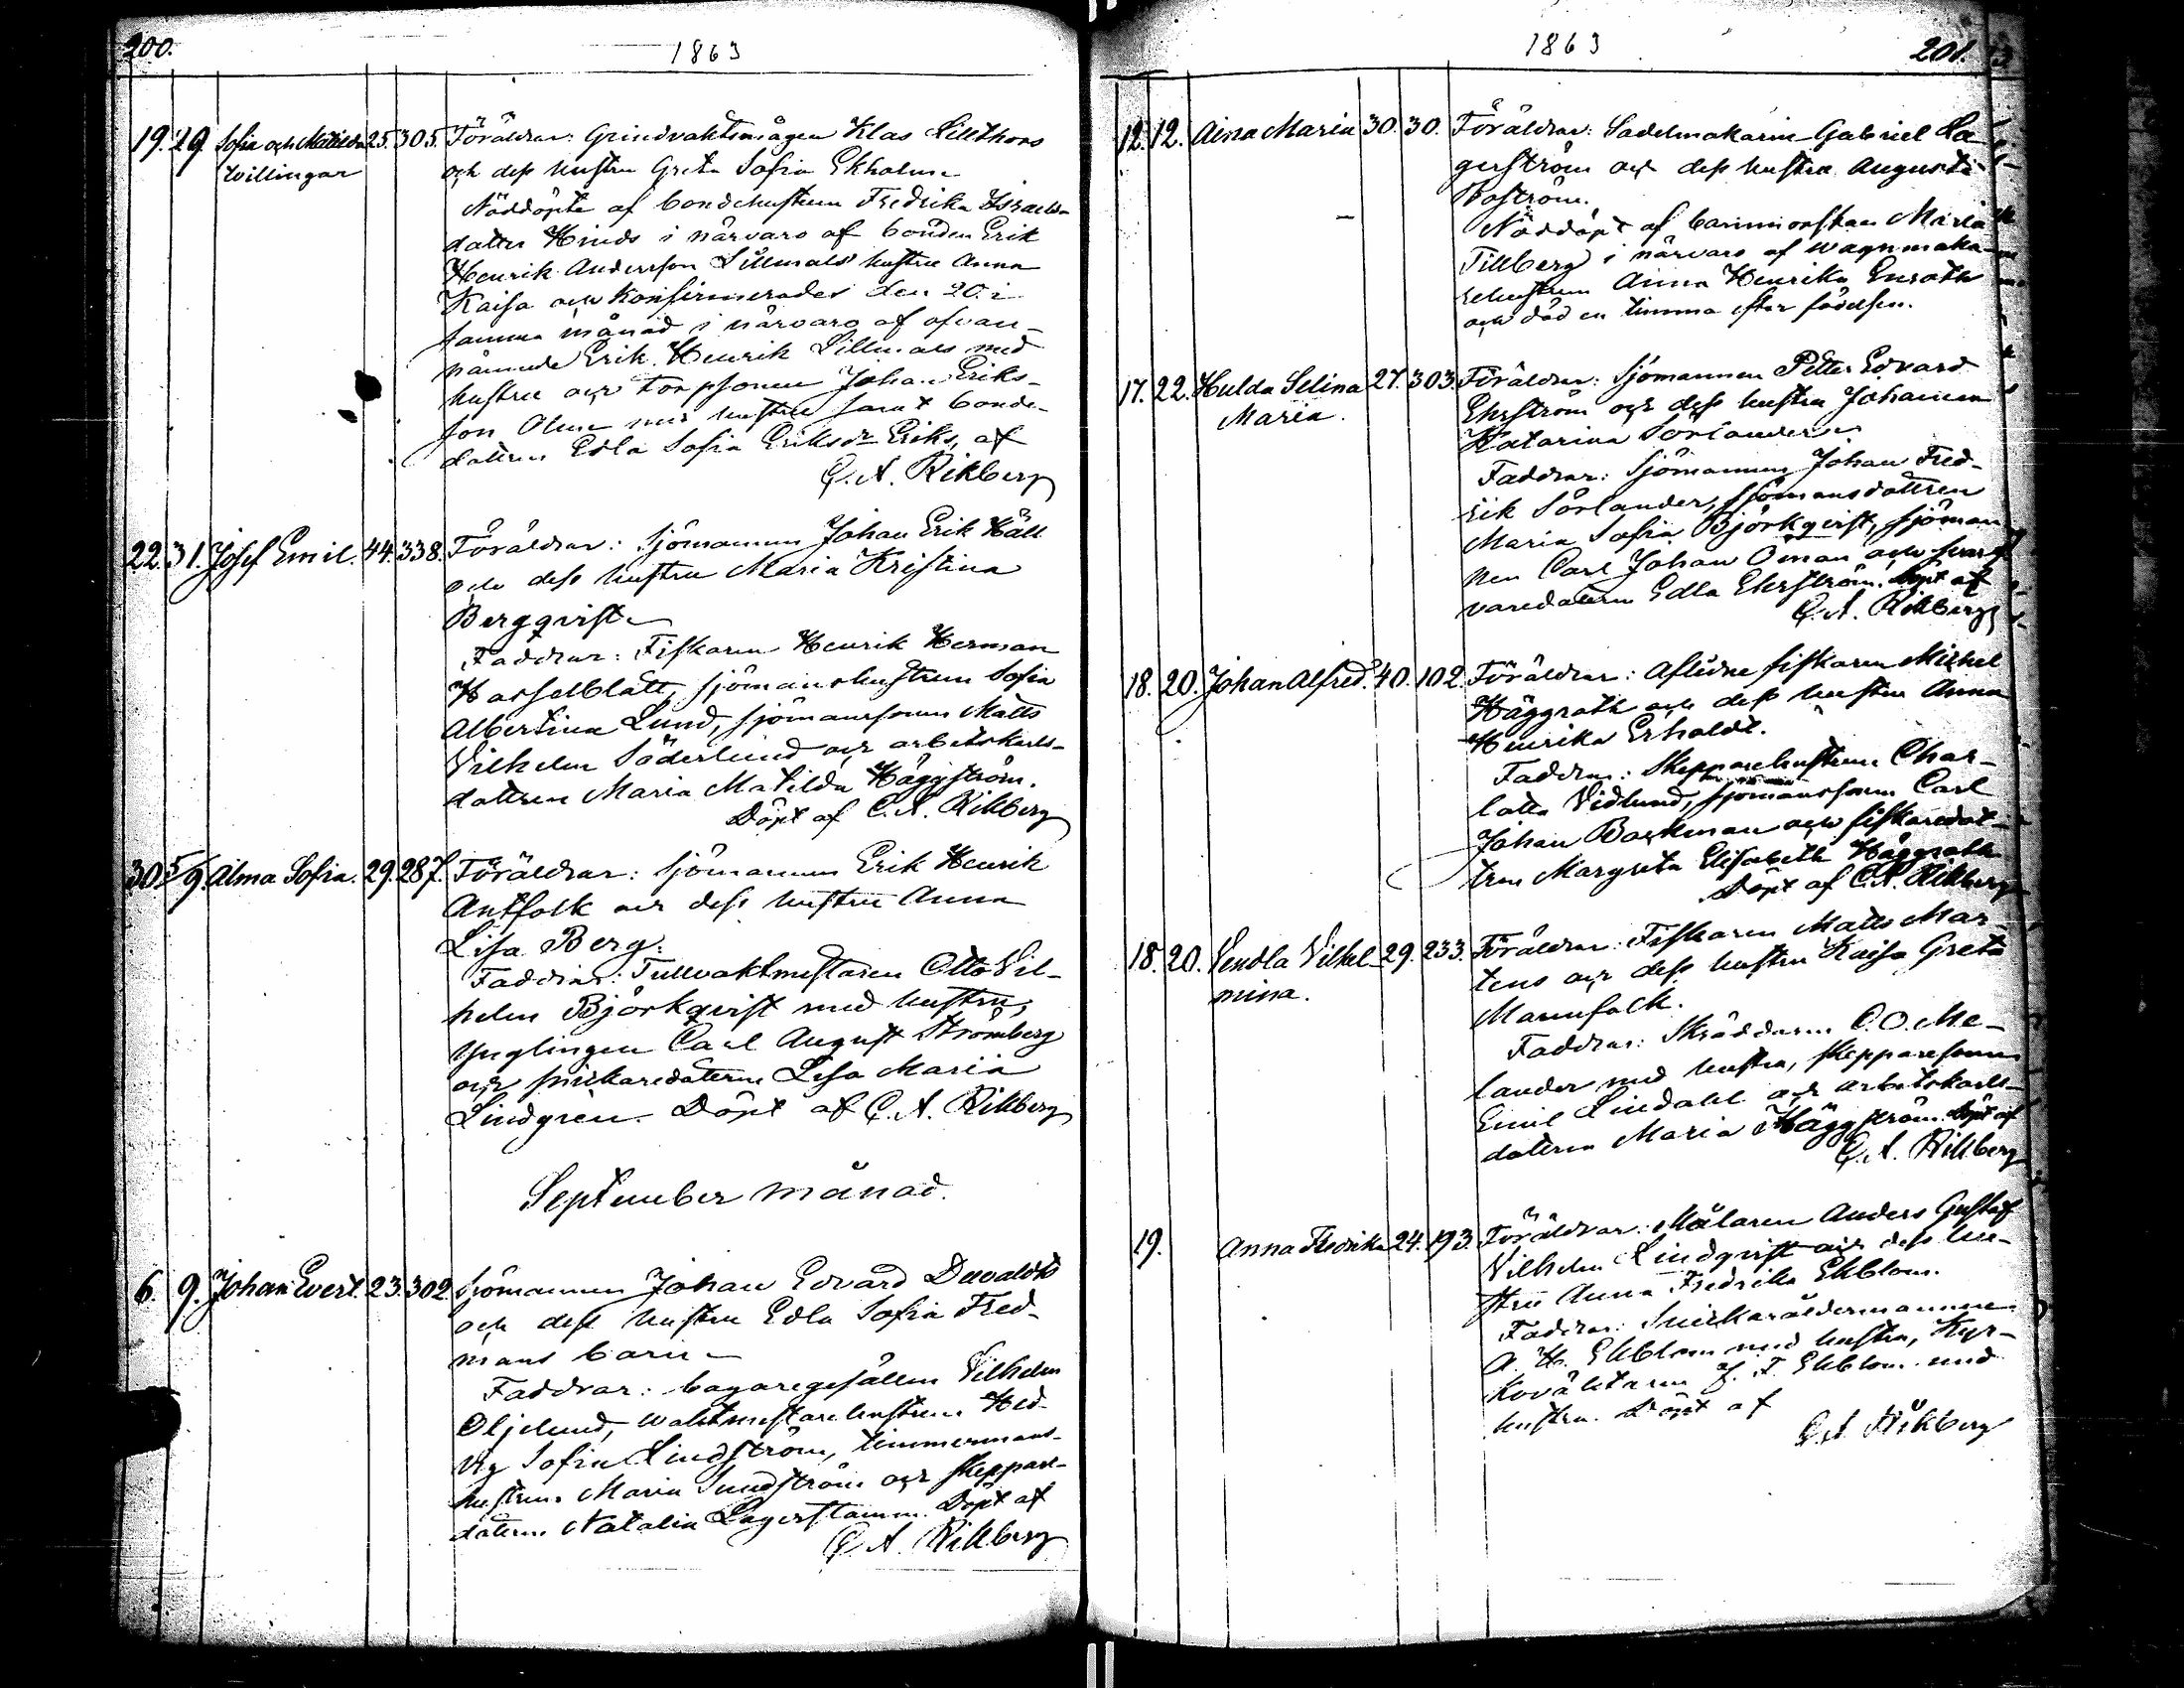 200.
1863
19. 29. Sofia och Matilda 25. 305. Föräldrar: Grindvaktmågen Klas Lillthors
tvillingar
och dess hustru Greta Sofia Ekholm
Nöddöpte af bondehustrun Fredrika Israels-
dotter Hinds i närvaro af bonden Erik
Henrik Andersson Lillmals hustru Anna
Kaisa och konfirmerades den 20. i
samma månad i närvaro af ofvan-
nämnde Erik Henrik Lillmals med
hustru och torpsonen Johan Eriks-
son med hustru samt bonde-
dottren Edla Sofia Eriksdr Eriks, af
C. A. Rikberg
22. 31. Josef Emil. 44. 338. Föräldrar: Sjömannen Johan Erik Häll
och dess hustru Maria Kristina
Bergqvist
Faddrar: Fiskaren Henrik Herman
Hasselblatt, sjömanshustrun Sofia
Albertina Lund, sjömanssonen Matts
Vilhelm Söderlund och arbetskarls-
dottren Maria Matilda Häggström.
Döpt af C. A. Rikberg
30. 5/9. Alma Sofia. 29. 287. Föräldrar: Sjömannen Erik Henrik
Antfolk och dess hustru Anna
Lisa Berg.
Faddrar: Tullvaktmästaren Otto Vil-
helm Björkqvist med hustru,
Ynglingen Carl August Strömberg
och snickaredottern Lisa Maria
Lindgren. Döpt af C. A. Rikberg
September månad.
6. 9. Johan Evert. 23. 302. Sjömannen Johan Edvard Duvaldts
och dess hustru Edla Sofia Fred-
mans barn
Faddrar: bagaregesällen Vilhelm
Oljelund, waktmästarehustrun Hed-
vig Sofia Lindström, timmermans-
hustrun Maria Sundström och skeppare-
dottern Natalia Lagerstam. Döpt af
C. A. Rikberg
1863
201.
12. 12. Aina Maria 30. 30. Föräldrar: Sadelmakarne Gabriel La-
gerström och dess hustru Augusta
Boström.
Nöddöpt af barnmorskan Maria
Tillberg i närvaro af wagnmaka-
rehustrun Anna Henrika Enroth
och död en timma efter födelsen.
17. 22. Hulda Selina 27. 303. Föräldrar: Sjömannen Petter Edvard
Maria.
Ehrström och dess hustru Johanna
Katarina Sörlander
Faddrar: Sjömannen Johan Fred-
rik Sörlander, sjömansdottren
Maria Sofia Björkqvist, sjöman-
nen Carl Johan Öman och
varedottern Edla Ehrström. Döpt af
C. A. Rikberg
18. 20. Johan Alfred. 40. 102. Föräldrar: Aflidne fiskaren Michel
Häggroth och dess hustru Anna
Henrika Erholdt.
Faddrar: Skepparehustrun Char-
lotta Vidlund, sjömanssonen Carl
Johan Backman och fiskaredot-
tren Margreta Elisabeth Häggroth
Döpt af C. A. Rikberg
18. 20. Vendla Vilhel- 29. 233. Föräldrar: Fiskaren Matts Mar-
mina.
tens och dess hustru Kaisa Greta
Mannfolk.
Faddrar: Skräddaren C. O. Me-
lander med hustru, skepparesonen
Emil Lindahl och arbetskarls-
dottern Maria Häggström. Döpt af
C. A. Rikberg
19. Anna Fredrika 24. 193. Föräldrar: Målaren Anders Gustaf
Vilhelm Lindqvist och dess hu-
stru Anna Fredrika Ekblom.
Faddrar: Snickaråldermannen
A. H. Ekblom med hustru, Kyr-
kovaktaren J. F. Ekblom med
hustru. Döpt af
C. A. Rikberg